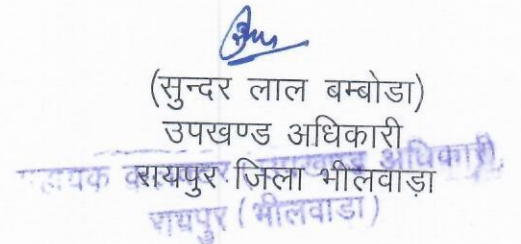 (सुन्दर लाल बम्बोडा)
उपखण्ड अधिकारी
रायपुर जिला भीलवाड़ा
अधिकारी,
रायपुर (भीलवाडा)